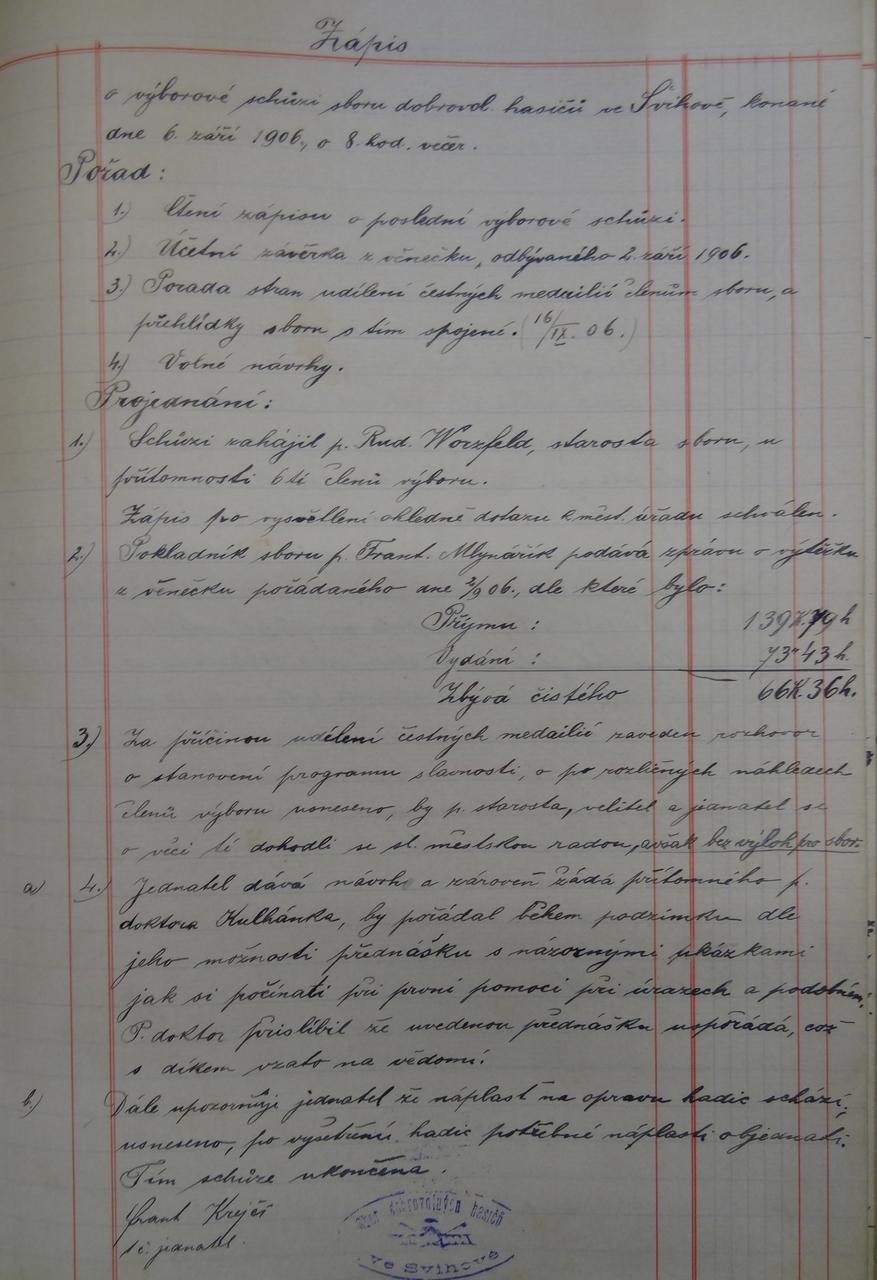 Zápis
o výborové schůzi sboru dobrovol. hasičů ve Švihově, konané
dne 6. září 1906., o 8. hod. večer.
Pořad:
1.) Čtení zápisu o poslední výborové schůzi.
2.) Účetní závěrka z věnečku, odbývaného 2. září 1906.
3.) Porada stran udílení čestných medailií členům sboru, a
přehlídky sboru s tím spojené. (16/IX. 06.)
4.) Volné návrhy.
Projednání:
1.) Schůzi zahájil p. Rud. Worzfeld, starosta sboru, u
přítomnosti 6ti členů výboru.
Zápis po vysvětlení ohledně dotazu k měst. úřadu schválen.
2.) Pokladník sboru p. Frant. Mlynářík podává zprávu o výtěžku
z věnečku pořádaného dne 2/9 06., dle které bylo:
Příjmu : 139K.79h
Vydání : 73"43h.
Zbývá čistého 66K.36h.
3.) Za příčinou udílení čestných medailií zaveden rozhovor
o stanovení programu slavnosti, a po rozličných náhledech
členů výboru usneseno, by p. starosta, velitel a jednatel se
o věci té dohodli se sl. městskou radou, avšak bez výloh pro sbor.
a) 4.) Jednatel dává návrh a zároveň žádá přítomného p.
doktora Kulhánka, by pořádal během podzimku dle
jeho možnosti přednášku s názornými ukázkami
jak si počínati při první pomoci při úrazech a podobném.
P. doktor přislíbil že uvedenou přednášku uspořádá, což
s díkem vzato na vědomí.
b.) Dále upozorňuje jednatel že náplast na opravu hadic schází,
usneseno, po vyšetření hadic potřebné náplasti objednati.
Tím schůze ukončena.
Frant Krejčí
t. č. jednatel.
Sbor dobrovolných hasičů
ve Švihově